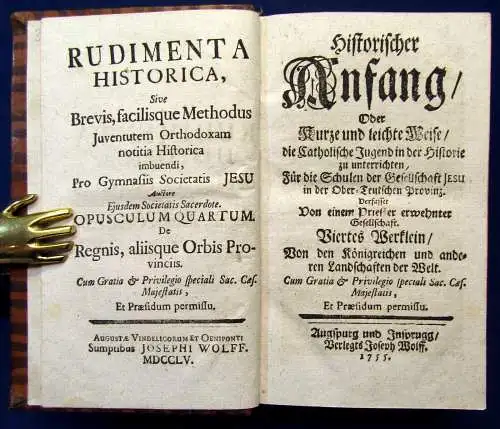 RUDIMENTA
HISTORICA,
Sive
Brevis, facilisque Methodus
Juventutem Orthodoxam
notitia Historica
imbuendi,
Pro Gymnasiis Societatis JESU
Auctore
Ejusdem Societatis Sacerdote.
OPUSCULUM QUARTUM.
De
Regnis, aliisque Orbis Pro-
vinciis.
Cum Gratia & Privilegio speciali Sac. Cæs.
Majestatis,
Et Præsidum permissu.
AUGUSTÆ VINDELICORUM ET OENIPONTI
Sumptibus JOSEPHI WOLFF.
MDCCLV.
Historischer
Anfang/
Oder
Kurze und leichte Weise/
die Catholische Jugend in der Historie
zu unterrichten,
Für die Schulen der Gesellschaft JESU
in der Ober-Teutschen Provinz.
Verfasset
Von einem Priester erwehnter
Gesellschaft.
Viertes Werklein/
Von den Königreichen und ande-
ren Landschaften der Welt.
Cum Gratia & Privilegio speciali Sac. Cæs.
Majestatis,
Et Præsidum permissu.
Augspurg und Insprugg/
Verlegts Joseph Wolff.
1755.